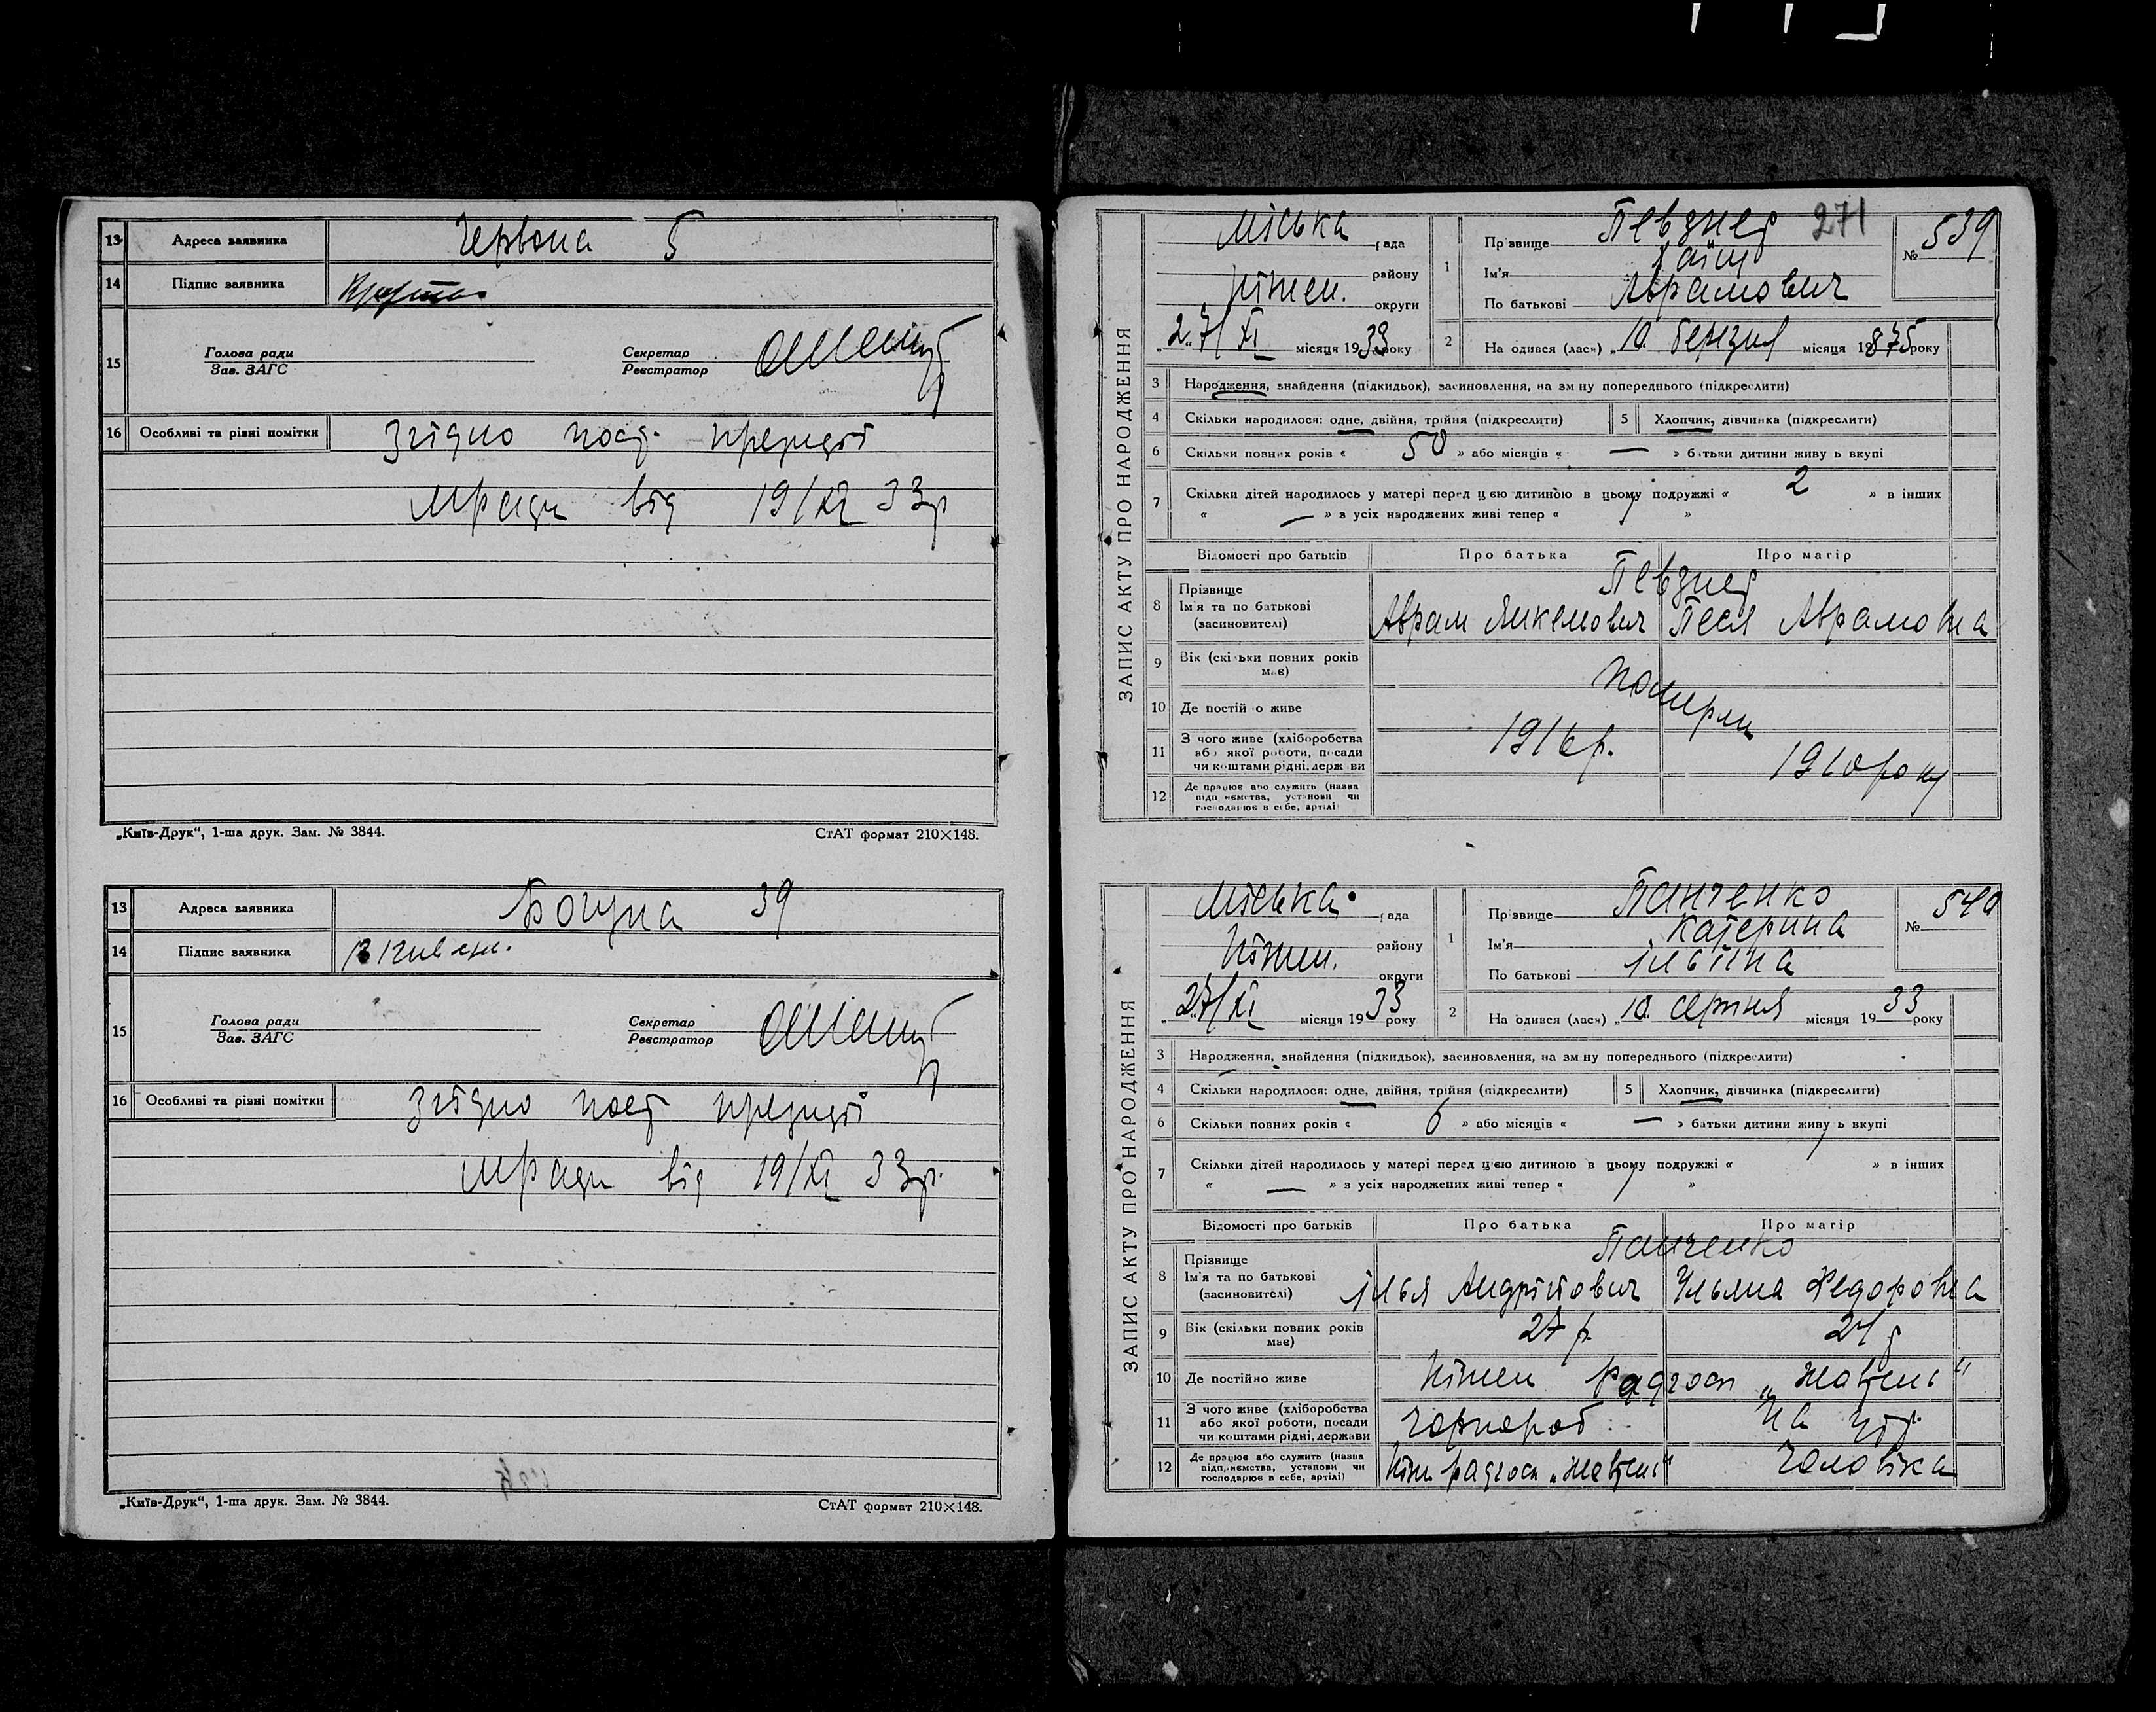 13 Адреса заявника Червона 5
14 Підпис заявника
15 Голова ради Зав. ЗАГС Секретар Реєстратор
16 Особливі та різні помітки Згідно пост. президії
мради від 19/XI 33р
„Київ-Друк“, 1-ша друк. Зам. № 3844. СтАТ формат 210×148.
13 Адреса заявника Богуна 39
14 Підпис заявника
15 Голова ради Зав. ЗАГС Секретар Реєстратор
16 Особливі та різні помітки Згідно пост президії
мради від 19/XI 33р.
„Київ-Друк“, 1-ша друк. Зам. № 3844. СтАТ формат 210×148.
271
ЗАПИС АКТУ ПРО НАРОДЖЕННЯ
Міська рада
району
Ніжен. округи
„27/XI місяця 1933 року
1 Прізвище Певзнер
Ім'я Хаїм
По батькові Аврамович
№ 539
2 Народився (лась) „10 березня місяця 1875 року
3 Народження, знайдення (підкидьок), засиновлення, на зміну попереднього (підкреслити)
4 Скільки народилося: одне, двійня, трійня (підкреслити) 5 Хлопчик, дівчинка (підкреслити)
6 Скільки повних років « 50 » або місяців « — » батьки дитини живуть вкупі
7 Скільки дітей народилось у матері перед цією дитиною в цьому подружжі « 2 » в інших
« — » з усіх народжених живі тепер « »
Відомості про батьків Про батька Про матір
8 Прізвище Ім'я та по батькові (засновителі) Певзнер
Аврам Янкелович Песя Аврамовна
9 Вік (скільки повних років має)
10 Де постійно живе померли
11 З чого живе (хліборобства або якої роботи, посади чи коштами рідні, держави 1916р. 1910 року
12 Де працює або служить (назва підприємства, установи чи господарює в себе, артілі)
ЗАПИС АКТУ ПРО НАРОДЖЕННЯ
Міська рада
Ніжен. району
округи
„27/XI місяця 1933 року
1 Прізвище Панченко
Ім'я Катерина
По батькові Ільїна
№ 540
2 Народився (лась) „10 серпня місяця 1933 року
3 Народження, знайдення (підкидьок), засиновлення, на зміну попереднього (підкреслити)
4 Скільки народилося: одне, двійня, трійня (підкреслити) 5 Хлопчик, дівчинка (підкреслити)
6 Скільки повних років « 6 » або місяців « — » батьки дитини живуть вкупі
7 Скільки дітей народилось у матері перед цією дитиною в цьому подружжі « » в інших
« — » з усіх народжених живі тепер « »
Відомості про батьків Про батька Про матір
8 Прізвище Ім'я та по батькові (засиновителі) Панченко
Ілья Андрійович Ульяна Федоровна
9 Вік (скільки повних років має) 27 р.
10 Де постійно живе Ніжен Радгосп „Жовтень“
11 З чого живе (хліборобства або якої роботи, посади чи коштами рідні, держави чорнороб. На утр.
12 Де працює або служить (назва підприємства, установи чи господарює в себе, артілі) Ніж радгосп „Жовтень“ чоловіка